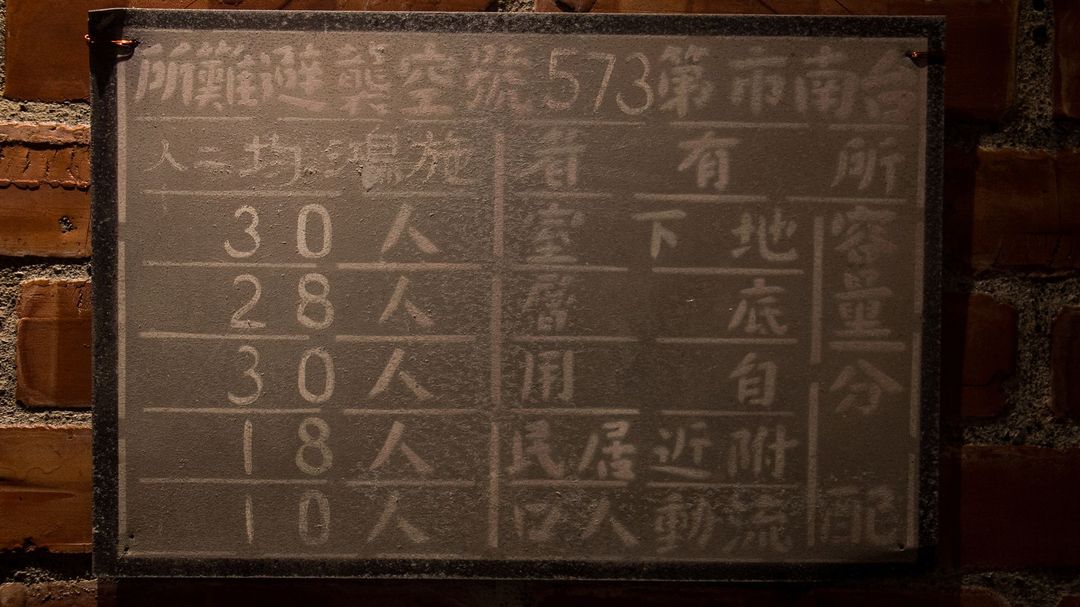 台南市第573號空襲避難所
所有者 施鴻均二人
容量分配
地下室 30人
底層 28人
自用 30人
附近居民 18人
流動人口 10人